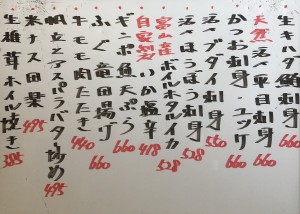 生キハダ鮪刺身 660
かつお刺身・ユッケ 660
天然活〆平目刺身 660
活〆ブダイ刺身 550
活〆ほうぼう刺身 528
富山産ボイルホタルイカ 528
自家製いか塩辛 418
ギンポ魚天ぷら 660
ふぐ竜田揚げ 660
牛モモ肉たたき 440
帆立とアスパラバター炒め 495
米ナス田楽 495
生椎茸ホイル焼き 385